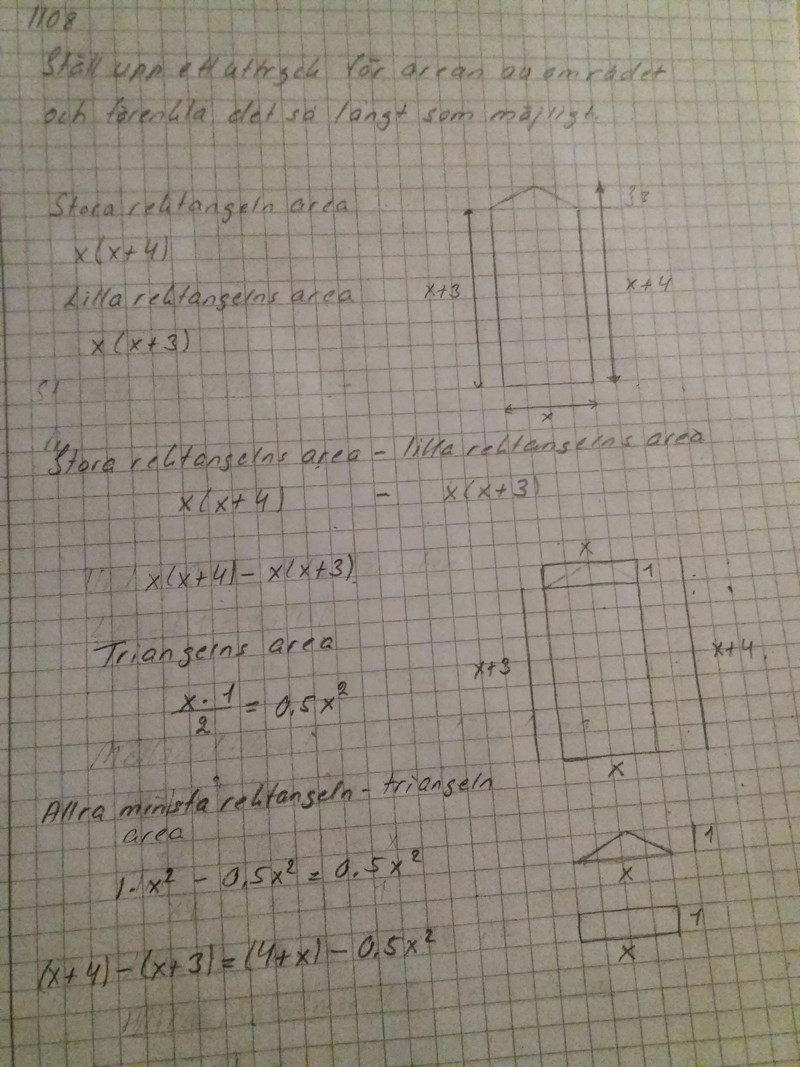 1108
Ställ upp ett uttryck för arean av området
och förenkla det så långt som möjligt.
Stora rektangeln area
x(x+4)
Lilla rektangelns area
x(x+3)
x+3
x+4
x
Stora rektangelns area - lilla rektangelns area
x(x+4) - x(x+3)
x(x+4) - x(x+3)
x
1
x+3
x+4
x
Triangelns area
x · 1 / 2 = 0,5x²
Allra minsta rektangeln - triangeln
area
1·x² - 0,5x² = 0,5x²
1
x
1
x
(x+4) - (x+3) = (4+x) - 0,5x²